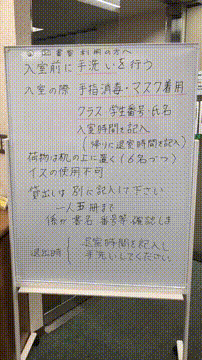 図書室利用の方へ
入室前に手洗いを行う
入室の際 手指消毒・マスク着用
クラス・学生番号・氏名
入室時間を記入
(帰りに退室時間を記入)
荷物は机の上に置く(6名づつ)
イスの使用不可
貸出しは 別に記入して下さい
一人五冊まで
係が書名 番号等 確認しま
退出時
退室時間を記入し
手洗いしてください。